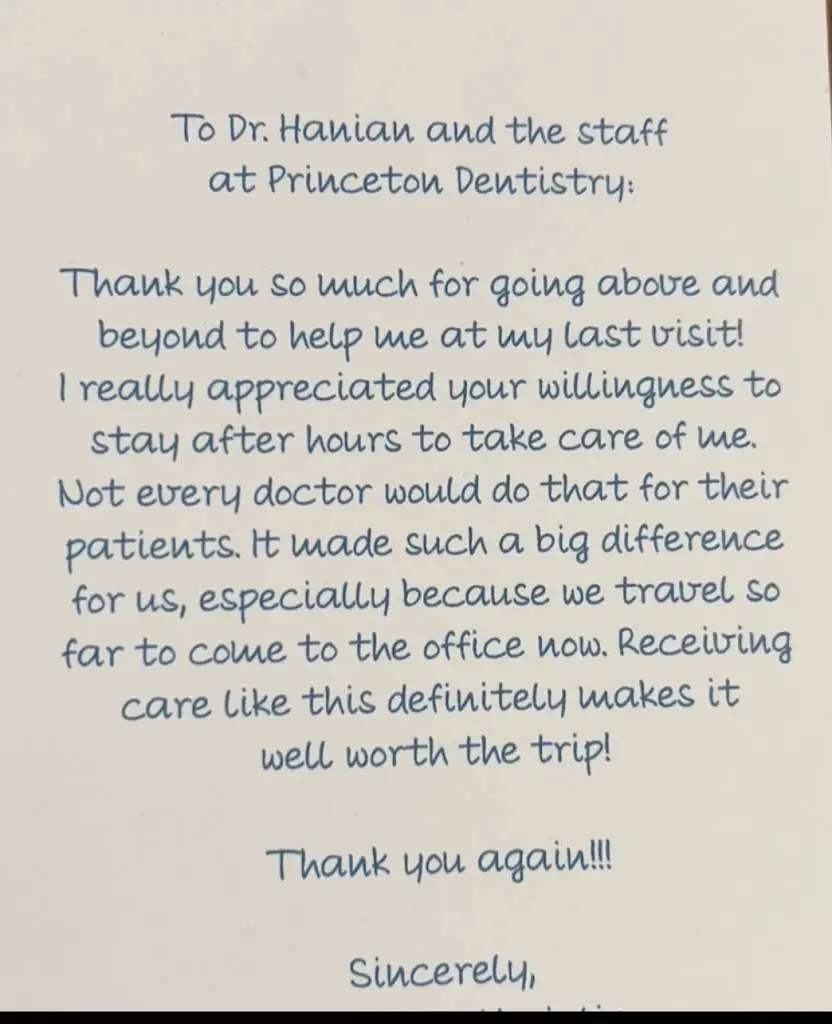 To Dr. Hanian and the staff
at Princeton Dentistry:
Thank you so much for going above and
beyond to help me at my last visit!
I really appreciated your willingness to
stay after hours to take care of me.
Not every doctor would do that for their
patients. It made such a big difference
for us, especially because we travel so
far to come to the office now. Receiving
care like this definitely makes it
well worth the trip!
Thank you again!!!
Sincerely,